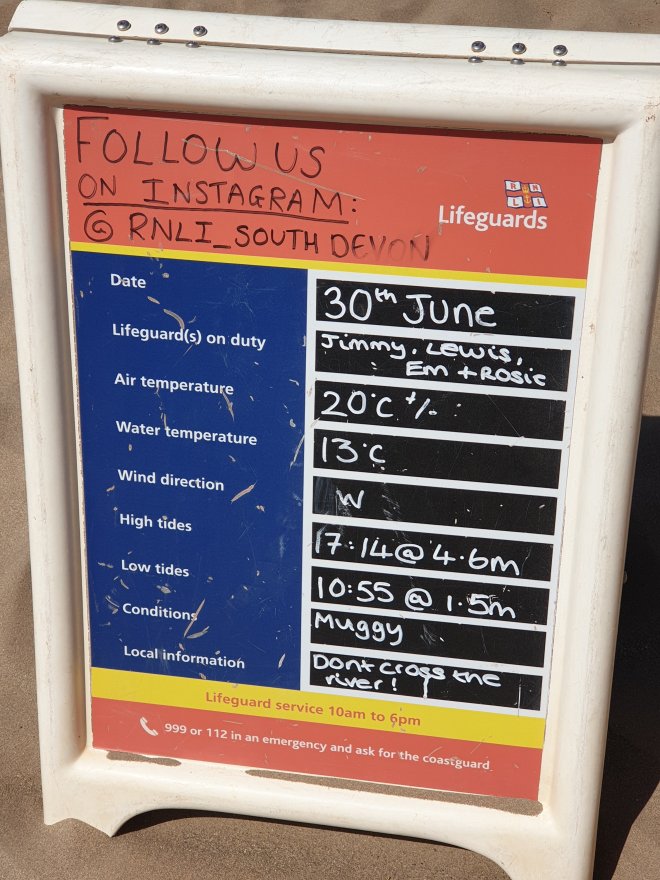 FOLLOW US
ON INSTAGRAM:
@ RNLI_SOUTH DEVON
RNLI
Lifeguards
Date 30th June
Lifeguard(s) on duty Jimmy, Lewis,
Em + Rosie
Air temperature 20°C +/-
Water temperature 13°C
Wind direction W
High tides 17:14 @ 4.6m
Low tides 10:55 @ 1.5m
Conditions Muggy
Local information Dont cross the
river!
Lifeguard service 10am to 6pm
999 or 112 in an emergency and ask for the coastguard